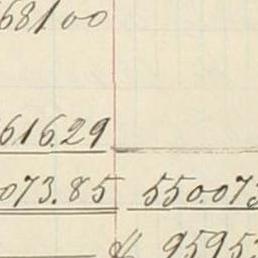 681.00
616.29
073.85 550.073
$ 9595